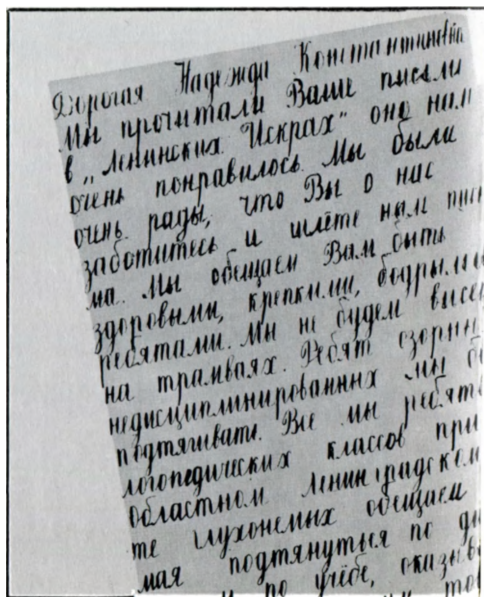 Дорогая Надежда Константиновна
Мы прочитали Ваше письмо
в „Ленинских Искрах" оно нам
очень понравилось. Мы были
очень рады, что Вы о нас
заботитесь и шлёте нам пись
ма. Мы обещаем Вам быть
здоровыми, крепкими, бодрыми
ребятами. Мы не будем висе
на трамваях. Ребят озорн
недисциплинированных мы бу
подтягивать. Все мы ребята
логопедических классов при
областном ленинградском
те глухонемых обещаем
мая подтянуться по ди
и по учёбе, оказыв